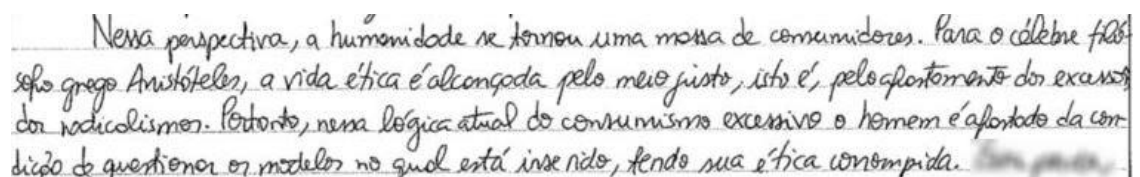 Nessa perspectiva, a humanidade se tornou uma massa de consumidores. Para o célebre filó-
sofo grego Aristóteles, a vida ética é alcançada pelo meio justo, isto é, pelo afastamento dos excessos,
dos radicalismos. Portanto, nessa lógica atual do consumismo excessivo o homem é afastado da con-
dição de questionar os modelos no qual está inserido, tendo sua ética corrompida.